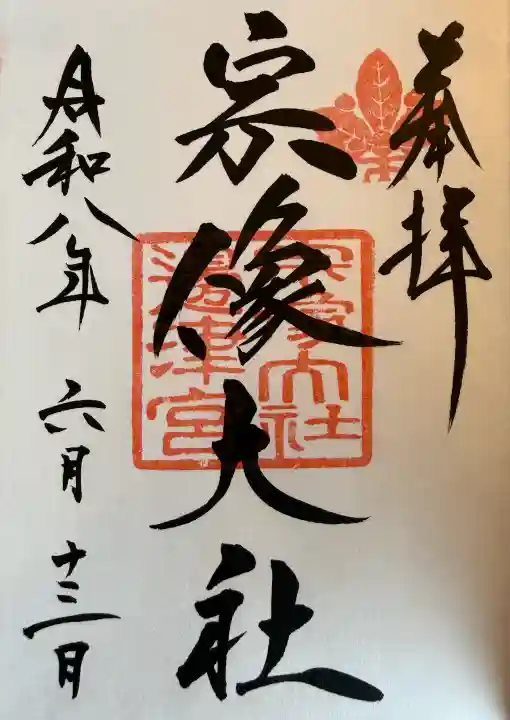 奉拝
宗像大社
宗像大社
邊津宮
令和八年 六月 十三日